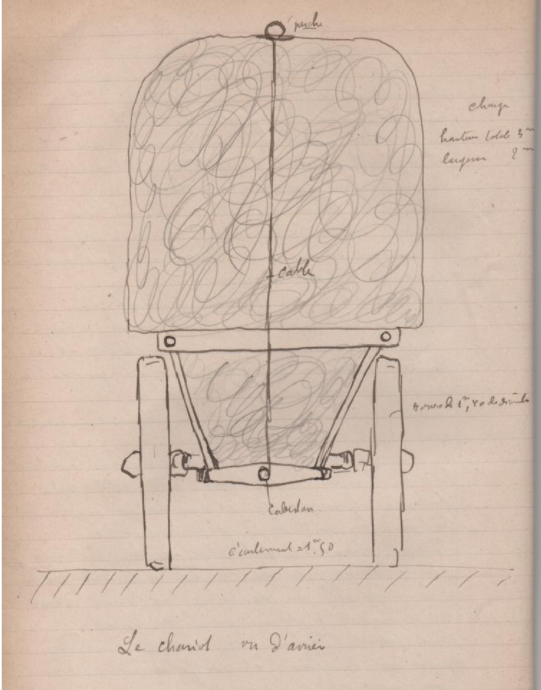 perche
charge
hauteur totale 3m
largeur 2m
cable
roues de 1m,40 de
cabestan
écartement = 1m50
Le chariot vu d'arrière